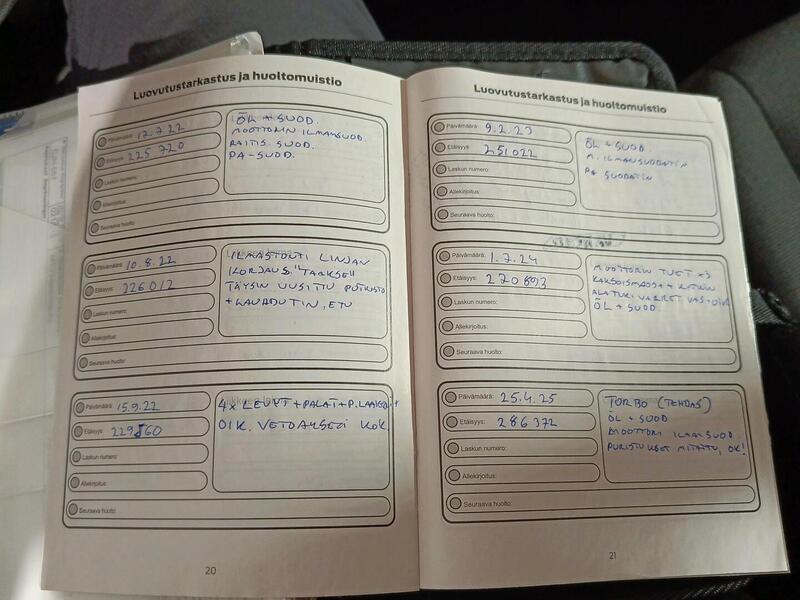 Luovutustarkastus ja huoltomuistio
Päivämäärä: 12.7.22
Etäisyys: 225 720
Laskun numero:
Allekirjoitus:
Seuraava huolto:
ÖL + SUOD.
MOOTTORIN ILMANSUOD.
RAITIS. SUOD.
PA-SUOD.
Päivämäärä: 10.8.22
Etäisyys: 226012
Laskun numero:
Allekirjoitus:
Seuraava huolto:
ILMASTOINTI LINJAN
KORJAUS. "TARKSELL"
TÄYSIN UUSITTU PUTKISTO
+ LAUHDUTIN, ETU
Päivämäärä: 15.9.22
Etäisyys: 229560
Laskun numero:
Allekirjoitus:
Seuraava huolto:
4x LEVYT + PALAT + P.
OIK. VETOAKSELI KOK.
20
Luovutustarkastus ja huoltomuistio
Päivämäärä: 9.2.23
Etäisyys: 251022
Laskun numero:
Allekirjoitus:
Seuraava huolto:
ÖL + SUOD
M. ILMANSUODATIN
PA SUODATIN
Päivämäärä: 1.7.24
Etäisyys: 270893
Laskun numero:
Allekirjoitus:
Seuraava huolto:
MOOTTORIN TUET x3
KAKSOISMASSA + KYTKIN
ALATUKIVARRET VAS-OIK
ÖL + SUOD
Päivämäärä: 25.4.25
Etäisyys: 286 372
Laskun numero:
Allekirjoitus:
Seuraava huolto:
TORBO (TEHDAS)
ÖL + SUOD
MOOTTORI ILMANSUOD.
PURISTUKSET MITATTU, OK!
21